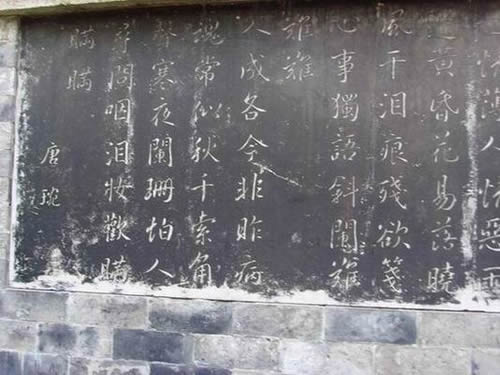 情薄人情惡雨
送黃昏花易落曉
風干泪痕殘欲箋
心事獨語斜闌難
難難
人成各今非昨病
魂常似秋千索角
聲寒夜闌珊怕人
尋問咽泪妝歡瞞
瞞瞞
唐琬